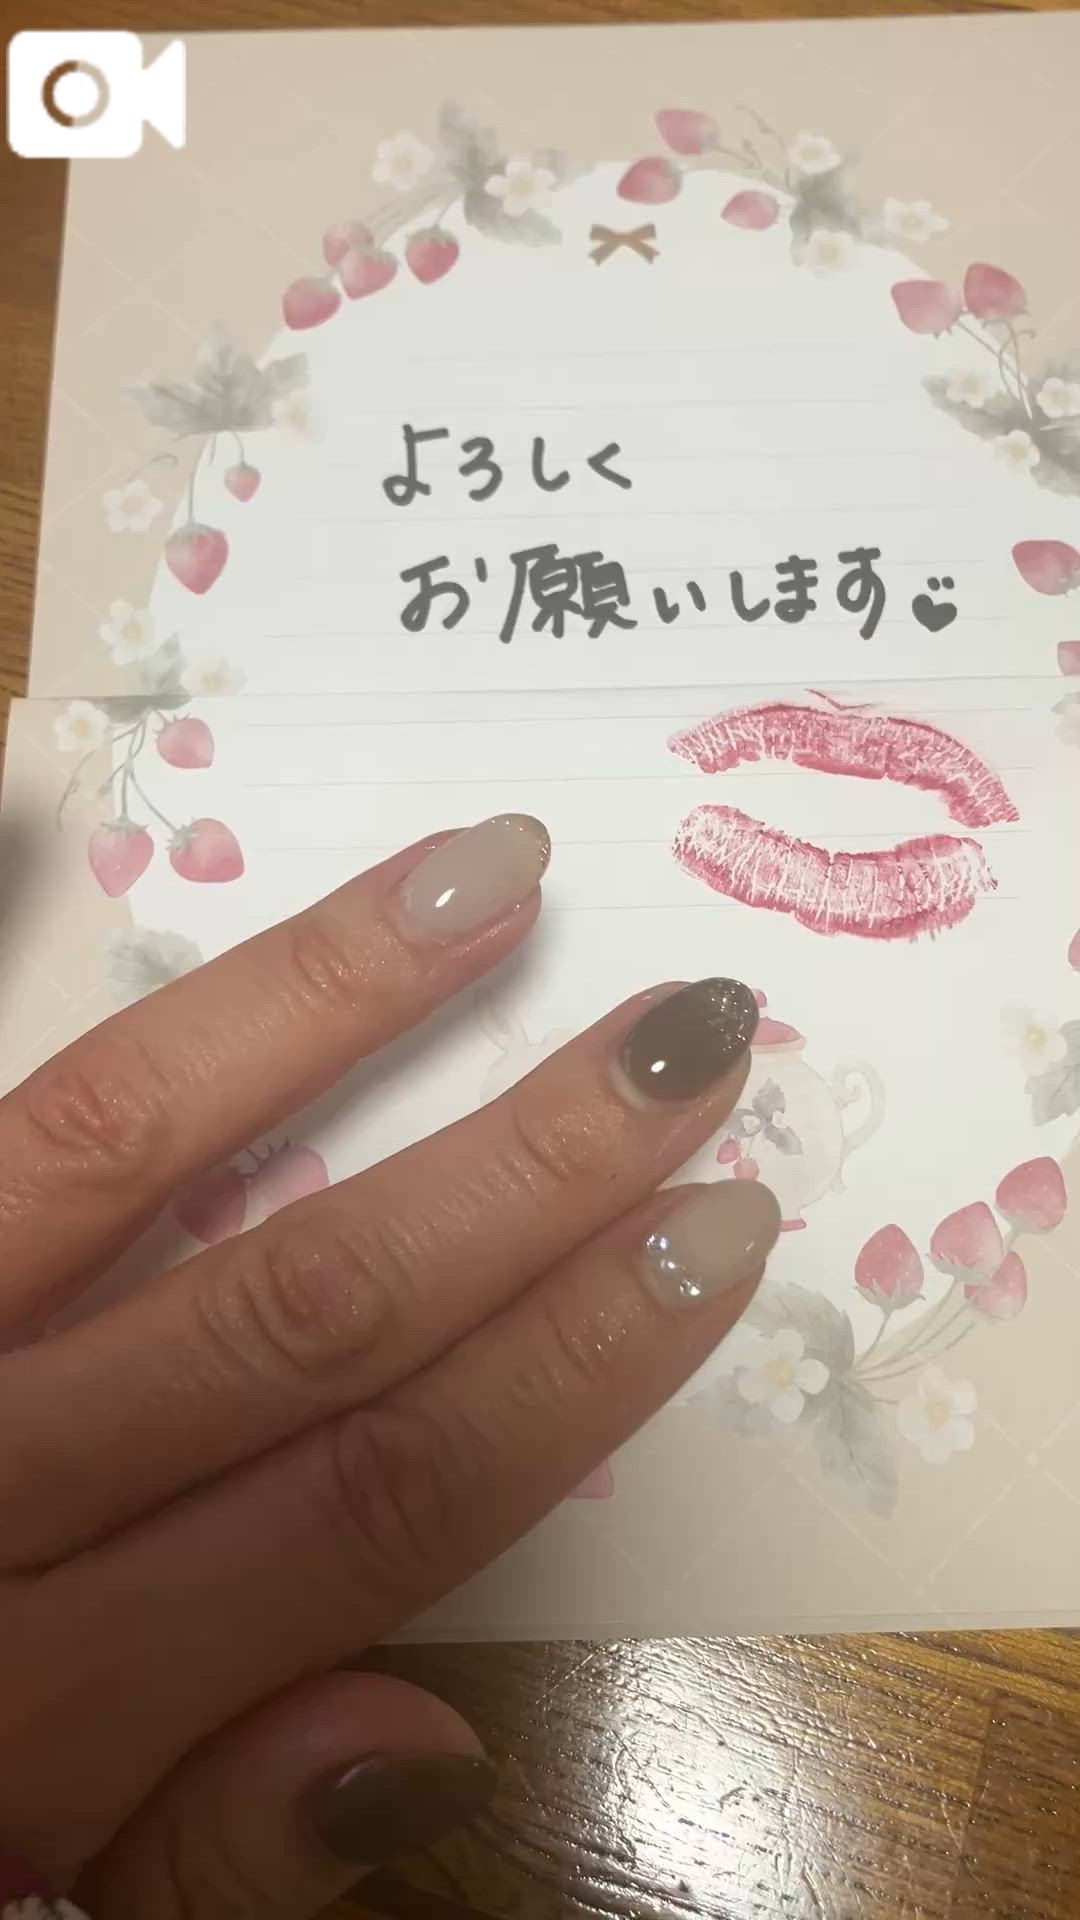 よろしく
お願いします